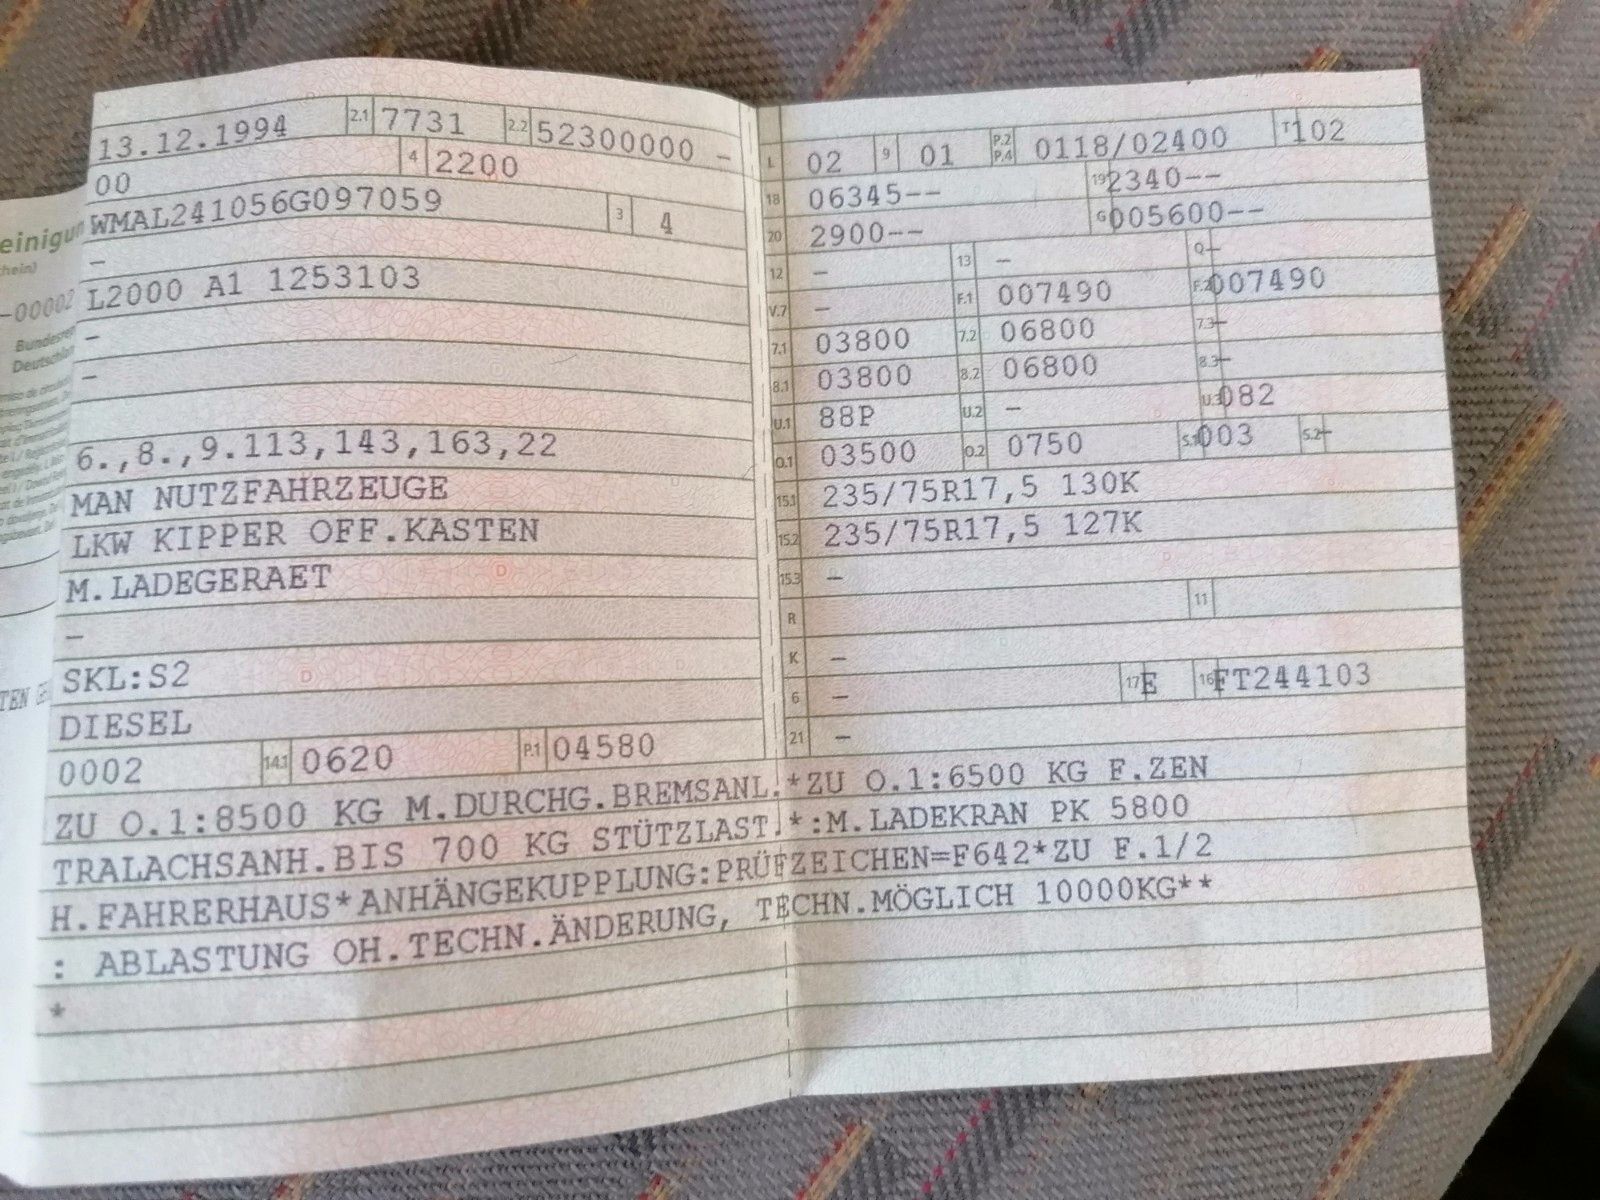 13.12.1994 2.1 7731 2.2 52300000 -
00 4 2200
WMAL241056G097059 3 4
-
L2000 A1 1253103
-
-
6.,8.,9.113,143,163,22
MAN NUTZFAHRZEUGE
LKW KIPPER OFF.KASTEN
M.LADEGERAET
-
SKL:S2
DIESEL
0002 14.1 0620 P.1 04580
L 02 9 01 P.2 P.4 0118/02400 T 102
18 06345-- 19 2340--
20 2900-- G 005600--
12 - 13 - Q -
V.7 - F.1 007490 F.2 007490
7.1 03800 7.2 06800 7.3 -
8.1 03800 8.2 06800 8.3 -
U.1 88P U.2 - U.3 082
O.1 03500 O.2 0750 S.1 003 S.2 -
15.1 235/75R17,5 130K
15.2 235/75R17,5 127K
15.3 -
R 11
K -
6 - 17 E 16 FT244103
21 -
ZU O.1:8500 KG M.DURCHG.BREMSANL.*ZU O.1:6500 KG F.ZEN
TRALACHSANH.BIS 700 KG STÜTZLAST.*:M.LADEKRAN PK 5800
H.FAHRERHAUS*ANHÄNGEKUPPLUNG:PRÜFZEICHEN=F642*ZU F.1/2
: ABLASTUNG OH.TECHN.ÄNDERUNG, TECHN.MÖGLICH 10000KG**
*
-00002